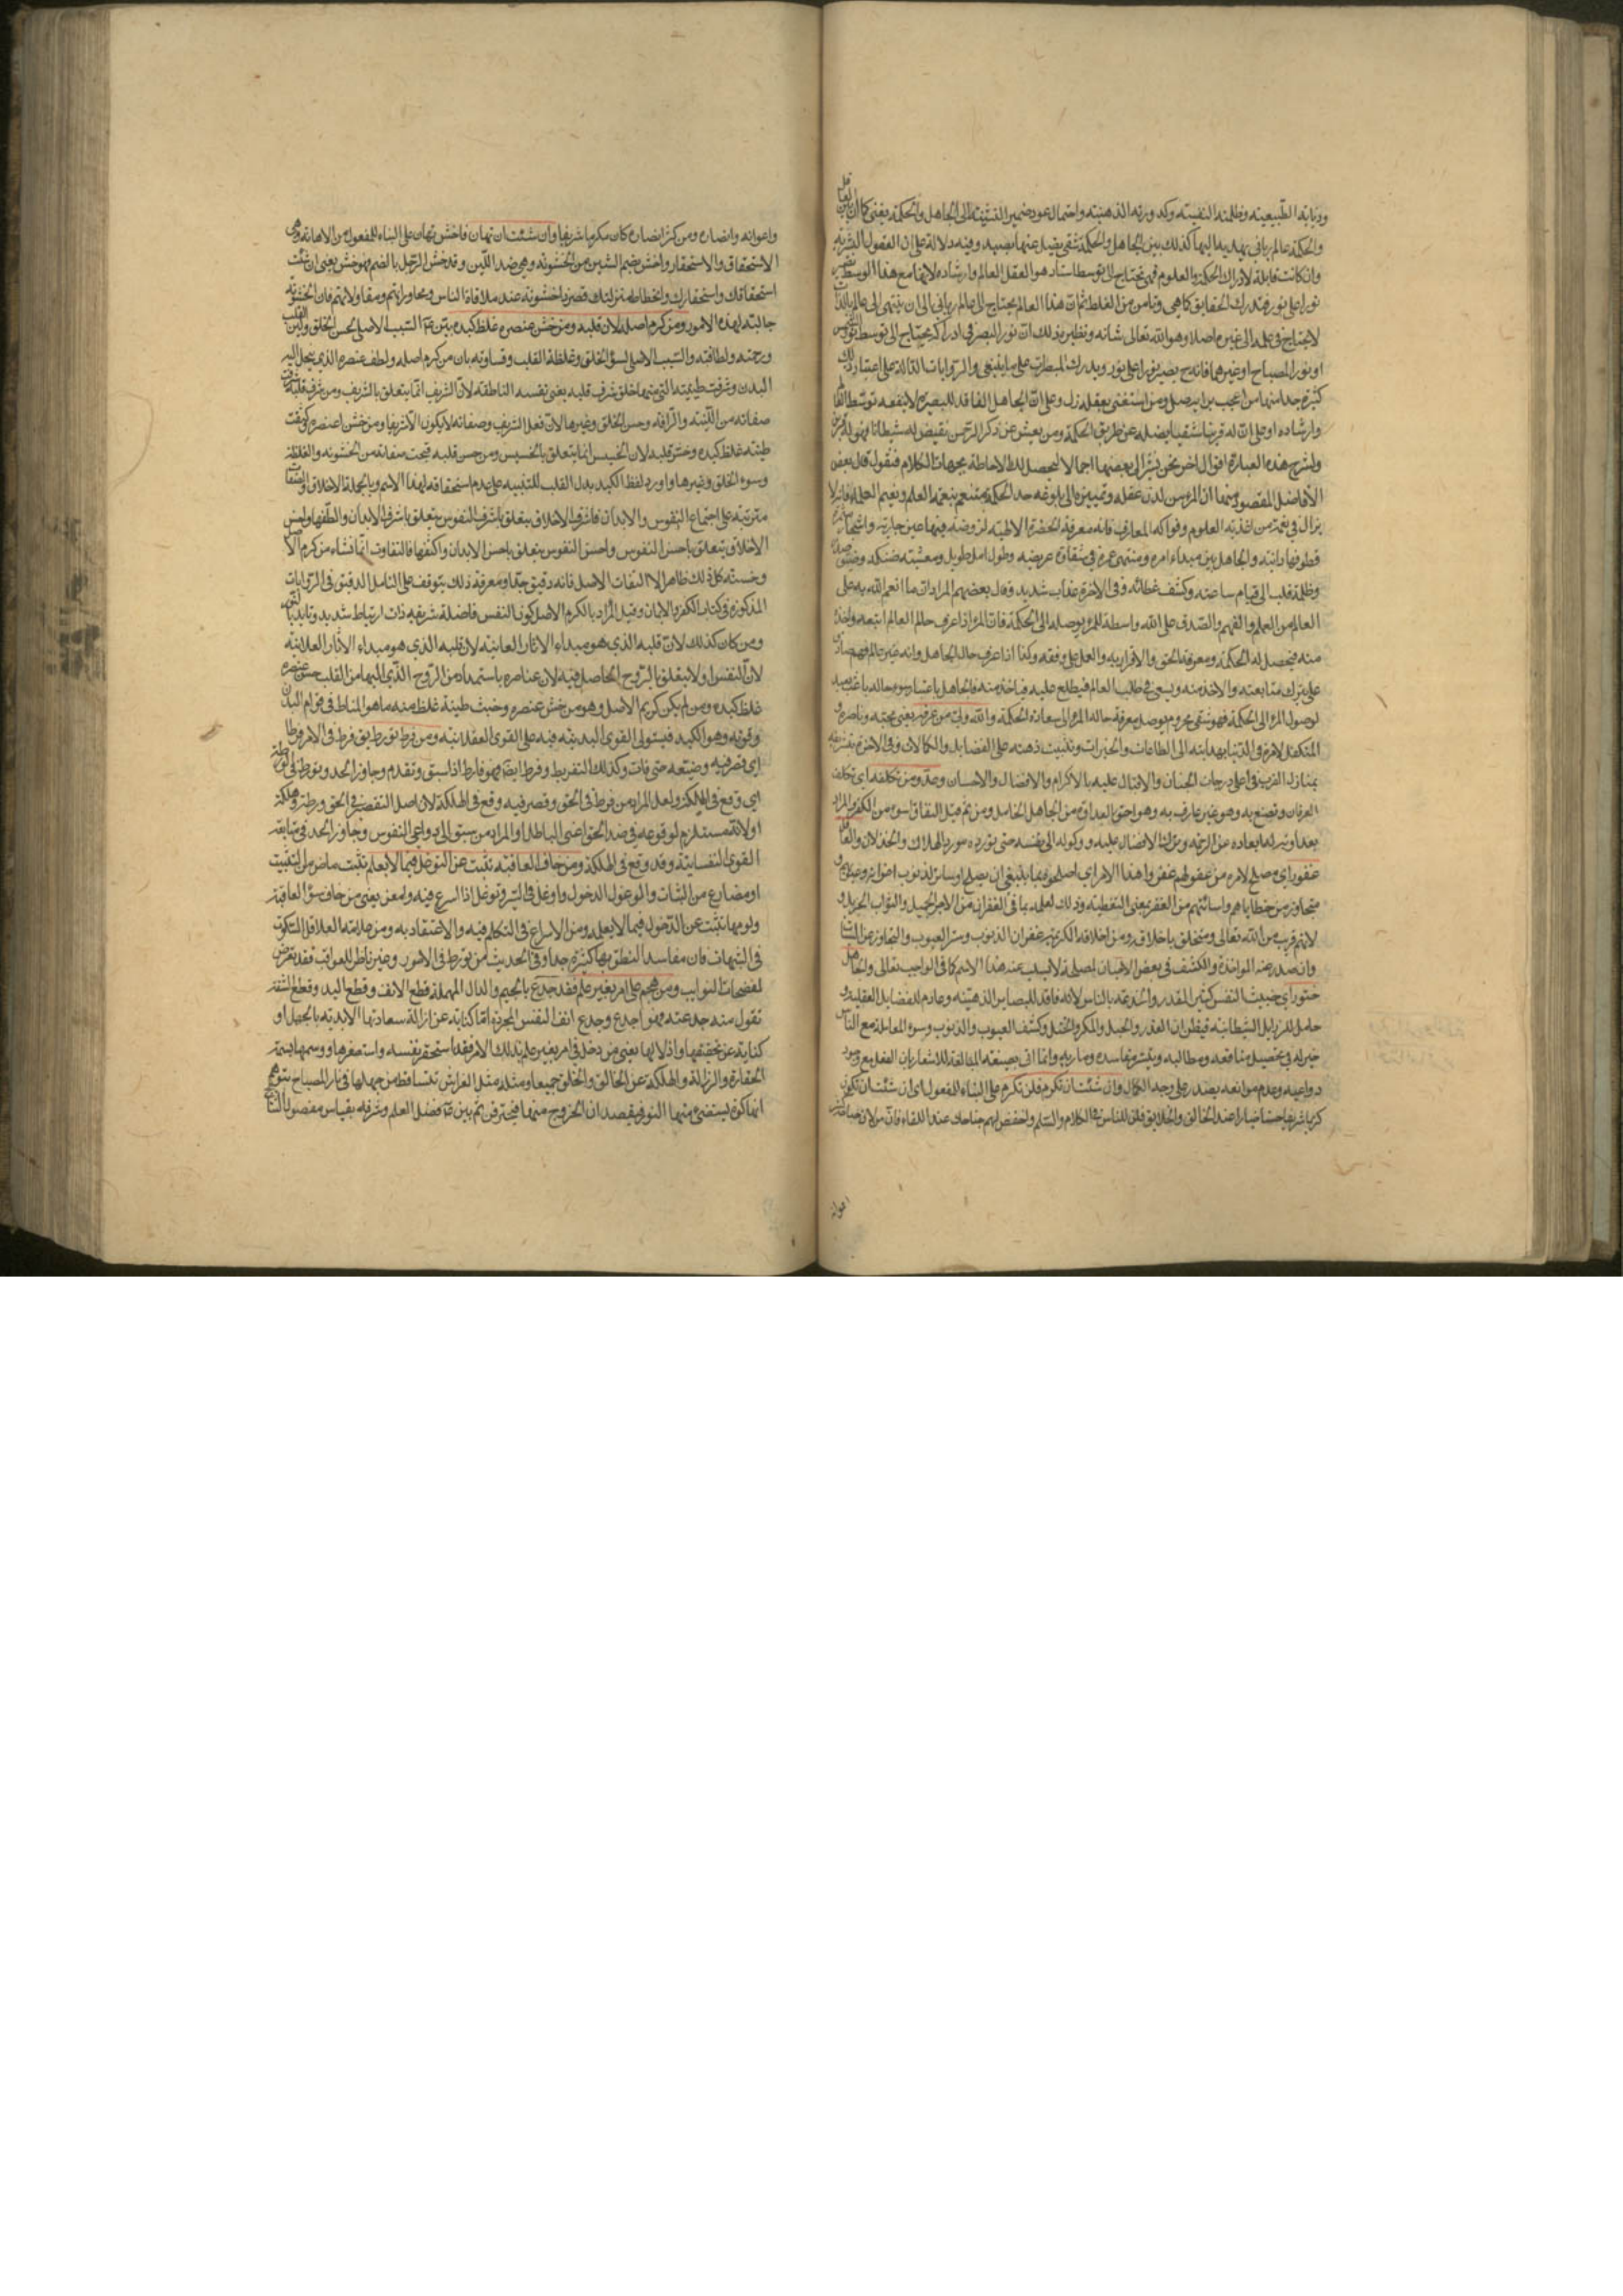 وذيابته الطبيعيته وظلمته النفسيته وكدورته الذهنيته واحتمال عود ضمير التثنية الى الجاهل والحكمة يعنى كما ان بين العاقل
والحكمة عالم ربانى يهديه اليها كذلك بين الجاهل والحكمة شقى يضله عنها وفيه دلالة على ان العقول البشريه
وان كانت قابلة لادراك الحكمة والعلوم فهى تحتاج الى توسط استاد هو العقل العالم وارشاده لانها مع هذا الوسط تصير
نورا على نور فتدرك الحقايق كما هى وتامن من الغلط ثم ان هذا العالم يحتاج الى عالم ربانى الى ان ينتهى الى عالم بالذات
لا يحتاج فى علمه الى غيره اصلا وهو الله تعالى شانه ونظير ذلك ان نور البصر فى ادراكه يحتاج الى توسط نور الشمس
او نور المصباح او غيرهما فانه ح يصير نورا على نور ويدرك المبصرات على ما ينبغى والروايات الدالة على اعتبار ذلك
كثيرة جدا منها من اعجب برايه ضل ومن استغنى بعقله زل وعلى ان الجاهل الفاقد للبصيرة لا ينفعه توسط العالم
وارشاده او على ان له قرينا شقيا يضله عن طريق الحكمة ومن يعش عن ذكر الرحمن نقيض له شيطانا فهو له قرين
ولشرح هذه العبارة اقوال اخر نحن نشير الى بعضها اجمالا ليحصل لك الاحاطة بجهات الكلام فنقول قال بعض
الافاضل المقصود منها ان المرء من لدن عقله وتمييزه الى بلوغه حد الحكمة متنعم بنعمة العلم ونعيم العلماء فانه لا
يزال فى نعمة من اغذية العلوم وفواكه المعارف فانه معرفة الحضرة الالهية لروضة فيها عين جارية واشجار مثمرة
قطوفها دانية والجاهل بين مبداء امره ومنتهى عمره فى شقاوة عريضة وطول امل طويل ومعيشة ضنك وضيق صدر
وظلمة قلب الى قيام ساعته وكشف غطائه وفى الاخرة عذاب شديد وقال بعضهم المراد ان ما انعم الله به على
العالم من العلم والفهم والصدق على الله واسطة للمرء يوصله الى الحكمة فان المرء اذا عرف حال العالم اتبعه واخذ
منه فيحصل له الحكمة ومعرفة الحق والاقرار به والعمل على وفقه وكذا اذا عرف حال الجاهل وانه غير عالم فهم صادق
على الله ترك متابعته والاخذ منه ويسعى فى طلب العالم فيطلع عليه فياخذ منه فالجاهل باعتبار سوء حاله باعث بعيد
لوصول المرء الى الحكمة فهو شقى محروم يوصل معرفة حاله المرء الى سعادة الحكمة والله ولى من عرفه يعنى محبه وناصره و
المتكفل لامره فى الدنيا بهدايته الى الطاعات والخيرات وتثبيت ذهنه على الفضايل والكمالات وفى الاخرة بتشريفه
بمنازل القرب فى اعلى درجات الجنان والاقبال عليه بالاكرام والافضال والاحسان وعدو من تكلفه اى تكلف
العرفان وتصنع به وهو غير عارف به وهو احق بالعداوة من الجاهل الخامل ومن ثم قيل النفاق اسوء من الكفر والمراد
بعداوته له ابعاده عن الرحمة وترك الافضال عليه ووكوله الى نفسه حتى تورده مورد الهلاك والخذلان والعاقل
غفور اى مصلح لامره من غفر لهم غفر واهذا الامر اى اصلحوه بما ينبغى ان يصلح او ساتر لذنوب اخوانه وعيوبهم و
متجاوز من خطاياهم واسائتهم من الغفر بمعنى التغطية وذلك لعلمه بما فى الغفران من الاجر الجميل والثواب الجزيل و
لانه قريب من الله تعالى ومتخلق باخلاقه ومن اخلاقه الكريمة غفران الذنوب وستر العيوب والتجاوز عن السيئات
وان صدر عنه المواخذة والكشف فى بعض الاحيان لمصلحة لا يسلب عنه هذا الاسم كما فى الواجب تعالى والجاهل
ختور اى خبيث النفس كثير الغدر والخدعة بالناس لانه فاقد للبصاير الذهنية وعادم للفضايل العقلية و
حامل للرزايل الشيطانية فيظن ان الغدر والحيل والمكر والختل وكشف العيوب والذنوب وسوء المعاملة مع الناس
خير له فى تحصيل منافعه ومطالبه وتيسر مقاصده ومآربه وانما اتى بصيغة المبالغة للاشعار بان الفعل مع وجود
دواعيه وعدم موانعه يصدر على وجه الكمال وان شئت ان تكرم فلن تكرم على البناء للمفعول اى ان شئت ان تكون
كريما شريفا حسنا خيارا عند الخالق والخلايق فلن للناس فى الكلام والسلم واخفض لهم جناحك عند اللقاء فان من لان جانبه كثر
اعوانه
واعوانه وانصاره ومن كثر انصاره كان مكرما شريفا وان شئت ان تهان فاخشن تهان على البناء للمفعول من الاهانة وهى
الاستحقاق والاستحقار واخشن بضم الشين من الخشونة وهى ضد اللين وقد خشن الرجل بالضم فهو خشن يعنى ان شئت
استحقاقك واستحقارك وانحطاط منزلتك فصر ذا خشونة عند ملاقاة الناس ومحاوراتهم ومقاولاتهم فان الخشونة
جالبة لهذه الامور ومن كرم اصله لان قلبه ومن خشن عنصره غلظ كبده بين عم السبب الاصلى لحسن الخلق ولين القلب
ورحمته ولطافته والسبب الاصلى لسؤ الخلق وغلظة القلب وقساوته بان من كرم اصله ولطف عنصره الذى ينحل اليه
البدن وشرفت طينته التى منها خلق شرف قلبه يعنى نفسه الناطقة لان الشريف انما يتعلق بالشريف ومن شرف قلبه شرفت
صفاته من اللينة والرافة وحسن الخلق وغيرها لان فعل الشريف وصفاته لا يكون الا شريفا ومن خشن عنصره وكثفت
طينته غلظ كبده وخس قلبه لان الخسيس انما يتعلق بالخسيس ومن خس قلبه قبحت صفاته من الخشونة والغلظة
وسوء الخلق وغيرها واورد لفظ الكبد بدل القلب للتنبيه على عدم استحقاقه لهذا الاسم وبالجملة الاخلاق والصفات
مترتبة على اجتماع النفوس والابدان فاشرف الاخلاق يتعلق باشرف النفوس يتعلق باشرف الابدان والطفها واخس
الاخلاق يتعلق باخس النفوس واخس النفوس يتعلق باخس الابدان واكثفها فالتفاوت انما نشاء من كرم الاصل
وخسته كل ذلك ظاهر الا التفات الاصل فانه دقيق جدا ومعرفة ذلك يتوقف على التامل الدقيق فى الروايات
المذكورة فى كتاب الكفر والايمان وقيل المراد بالكرم الاصل كون النفس فاضلة شريفة ذات ارتباط شديد وتايد بالحق
ومن كان كذلك لان قلبه الذى هو مبداء الاثار العالية لان قلبه الذى هو مبداء الاثار العقلانية
لان النفس اولا يتعلق بالروح الحاصل فيه لان عناصره باستمداد من الروح الذى اليها من القلب خشن عنصره
غلظ كبده ومن لم يكن كريم الاصل وهو من خشن عنصره وخبث طينته غلظ منه ما هو المناط فى قوام البدن
وقوته وهو الكبد فيستولى القوى البدنية فيه على القوى العقلانية ومن فرط تورط يق فرط فى الامر فرطا
اى قصر فيه وضيعه حتى فات وكذلك التفريط وفرط ايضا فهو فارط اذا سبق وتقدم وجاوز الحد وتورط فى الورطة
اى وقع فى الهلكة ولعل المراد من فرط فى الحق وقصر فيه وقع فى الهلكة لان اصل التقصير فى الحق ورطة وهلكة
او لانه مستلزم لوقوعه فى ضد الحق اعنى الباطل او المراد من سبق الى دواعى النفوس وجاوز الحد فى متابعة
القوى النفسانية وقد وقع فى الهلكة ومن خاف العاقبة تثبت عن التوغل فيما لا يعلم تثبت ماض من التثبيت
او مضارع من الثبات والوغول الدخول واوغل فى السير وتوغل اذا اسرع فيه وامعن يعنى من خاف سؤ العاقبة
ولومها تثبت عن الدخول فيما لا يعلمه ومن الاسراع فى التكلم فيه والاعتقاد به ومن علامة العاقل السكوت
فى الشبهات فان مفاسد النطق بها كثيرة جدا وفى الحديث من تورط فى الامور وغير ناظر للعواقب فقد تعرض
لفضحات النوايب ومن هجم على امر بغير علم فقد جدع بالجيم والدال المهملة قطع الانف وقطع اليد وقطع الشفة
تقول منه جدعته فهو اجدع وجدع انف النفس المجردة اما كناية عن ازالة سعادتها الابدية بالجهل او
كناية عن تحقيرها واذلالها يعنى من دخل فى امر بغير علم بذلك الامر فقد استحقر نفسه واستصغرها ووسمها بسمة
الحقارة والرزالة والهلكة عن الخالق والخلق جميعا ومثله مثل الفراش تتساقط من جهلها فى نار المصباح بتوهم
انها كوة يستضئ منها النور فيقصد ان الخروج منها فيحترق ثم بين عم فضل العلم وشرفه بقياس مفصول النتايج